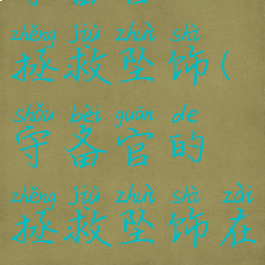 chěng jiù zhuì shì
拯救坠饰(
shǒu bèi guān de
守备官的
chěng jiù zhuì shì zài
拯救坠饰在